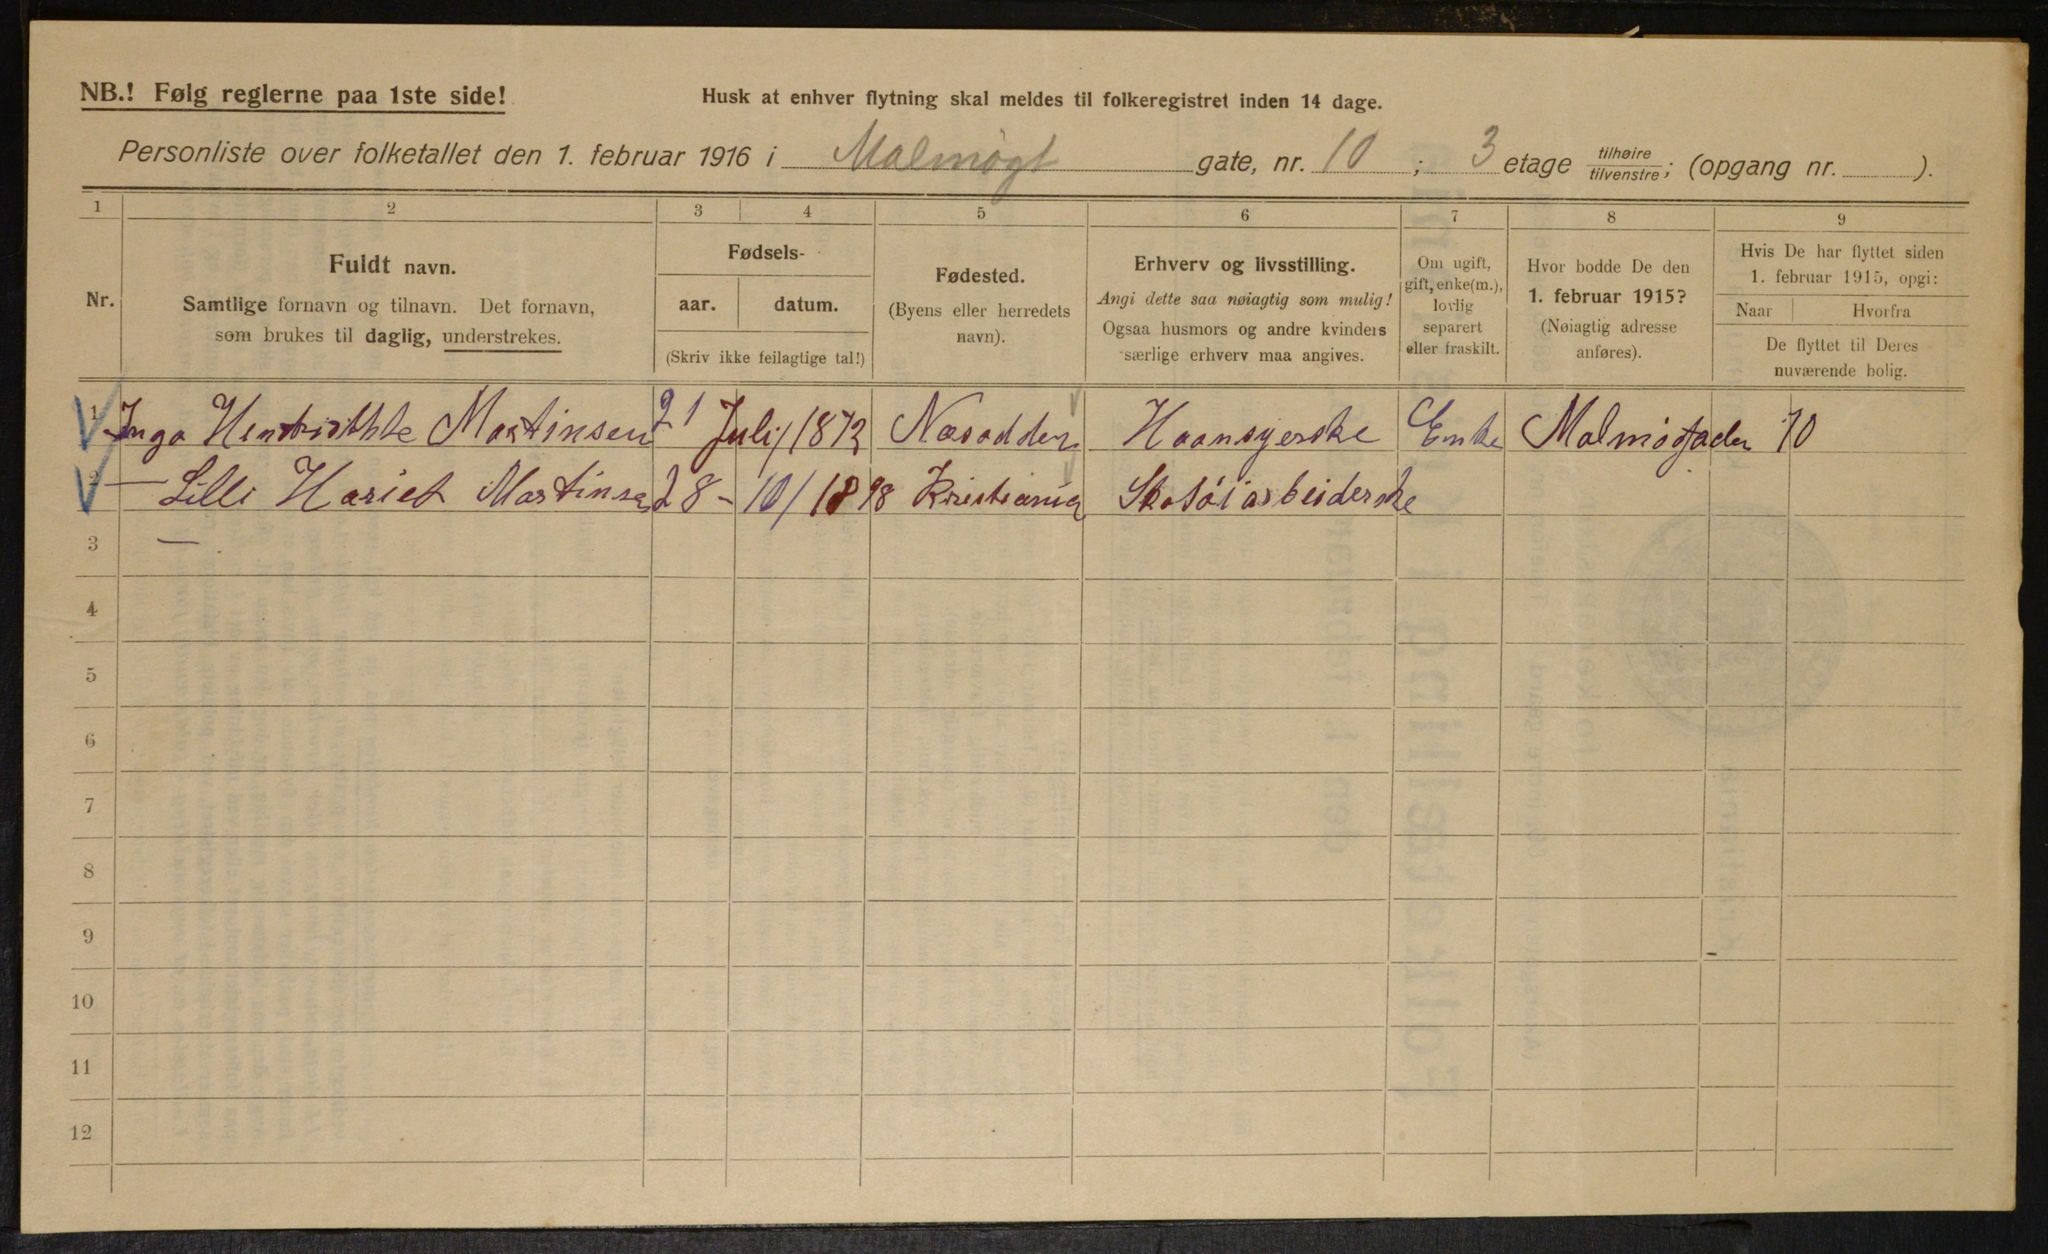 NB.! Følg reglerne paa 1ste side!
Husk at enhver flytning skal meldes til folkeregistret inden 14 dage.
Personliste over folketallet den 1. februar 1916 i Malmøgt gate, nr. 10 ; 3 etage tilhøire tilvenstre; (opgang nr. ).
1 2 3 4 5 6 7 8 9
Nr.
Fuldt navn.
Samtlige fornavn og tilnavn. Det fornavn,
som brukes til daglig, understrekes.
Fødsels-
aar. datum.
(Skriv ikke feilagtige tal!)
Fødested.
(Byens eller herredets
navn).
Erhverv og livsstilling.
Angi dette saa nøiagtig som mulig!
Ogsaa husmors og andre kvinders
særlige erhverv maa angives.
Om ugift,
gift, enke(m.),
lovlig
separert
eller fraskilt.
Hvor bodde De den
1. februar 1915?
(Nøiagtig adresse
anføres).
Hvis De har flyttet siden
1. februar 1915, opgi:
Naar Hvorfra
De flyttet til Deres
nuværende bolig.
1 Inga Martinsen 21 Juli / 1872 Nesodden Enke 10
2 — Lilli Hariet Martinsen 28 – 10 / 1898 Kristiania Skotøiarbeiderske
3 —
4
5
6
7
8
9
10
11
12